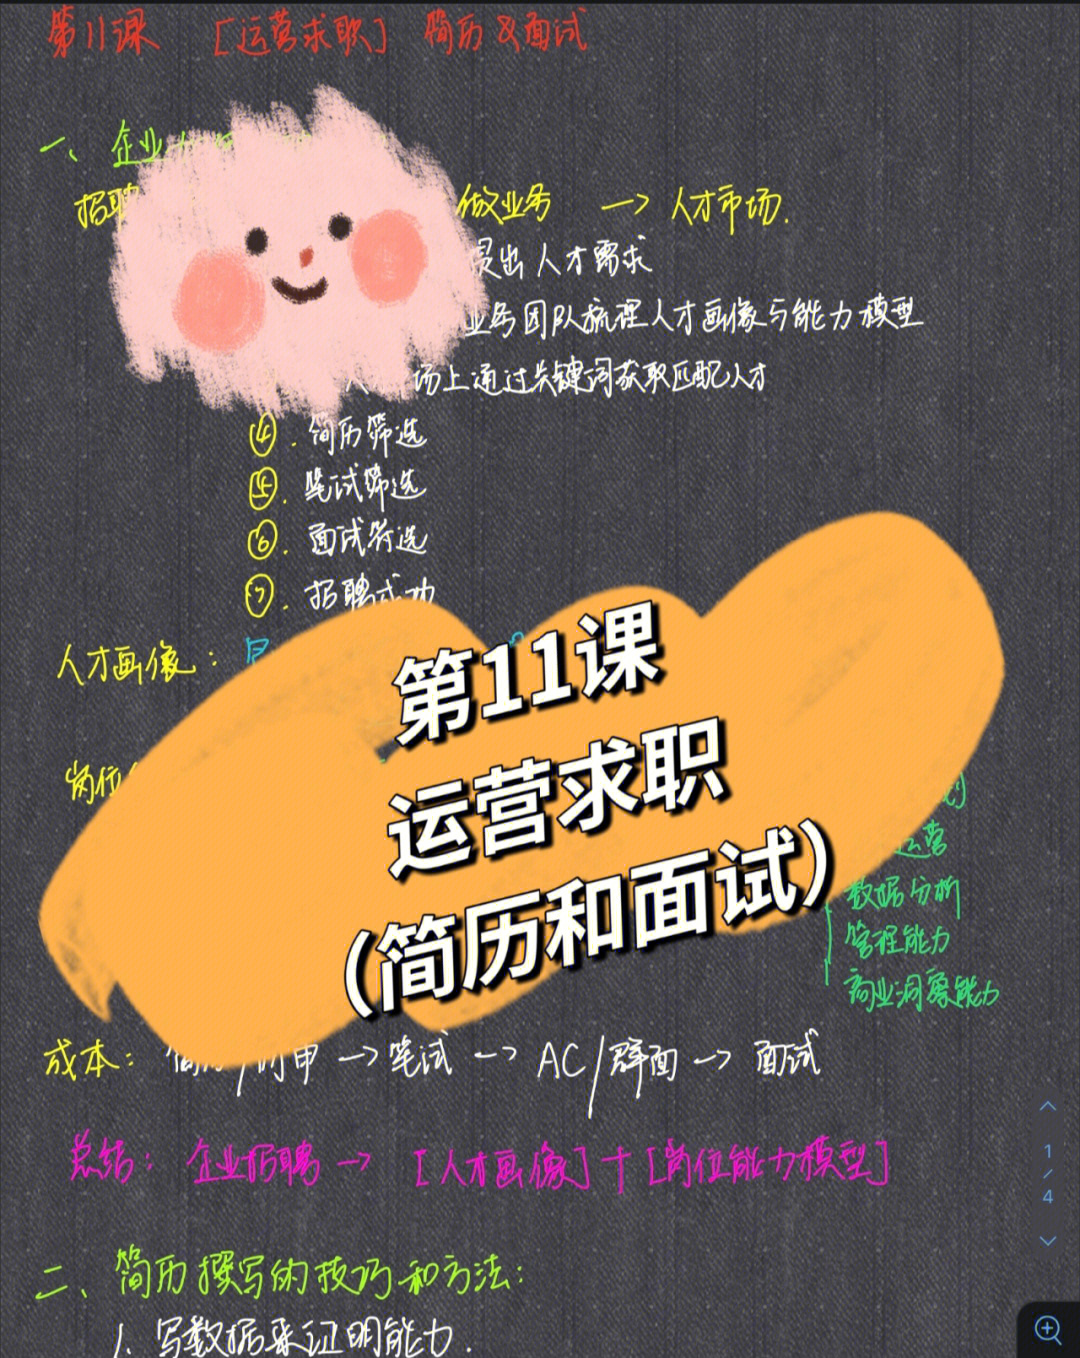 第11课 [运营求职] 简历&面试
一、企业
招聘 做业务 → 人才市场.
提出人才需求
业务团队梳理人才画像与能力模型
场上通过关键词获取匹配人才
④. 简历筛选
⑤. 笔试筛选
⑥. 面试筛选
⑦. 招聘成功
人才画像:
第11课
运营求职
(简历和面试)
岗位
运营
数据分析
管理能力
商业洞察能力
成本: /网申 → 笔试 → AC/群面 → 面试
总结: 企业招聘 → [人才画像]+[岗位能力模型]
1/4
二、简历撰写的技巧和方法:
1. 写数据来证明能力.